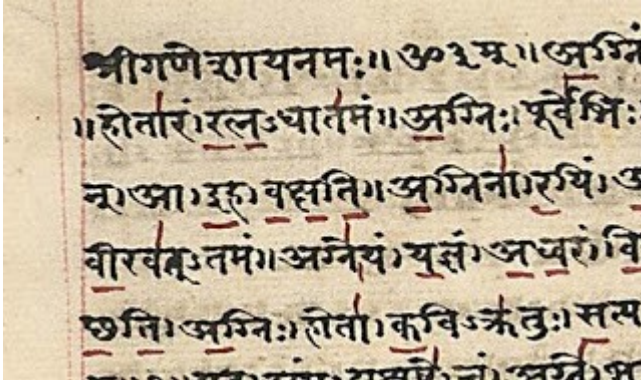 श्रीगणेशायनमः॥ॐ३म्॥अ॒ग्निं
॥होता॑रं।र॒त्न॒ऽधात॑मं॥अ॒ग्निः।पूर्वे॑भिः
न्।आ।इ॒ह।व॒क्ष॒ति॒॥अ॒ग्निना॑।र॒यिं।अ
वी॒रव॑त्ऽतमं॥अग्ने॑।यं।य॒ज्ञं।अ॒ध्व॒रं।वि
च्छ॒ति॒।अ॒ग्निः।होता॑।क॒विऽक्र॑तुः।स॒त्य